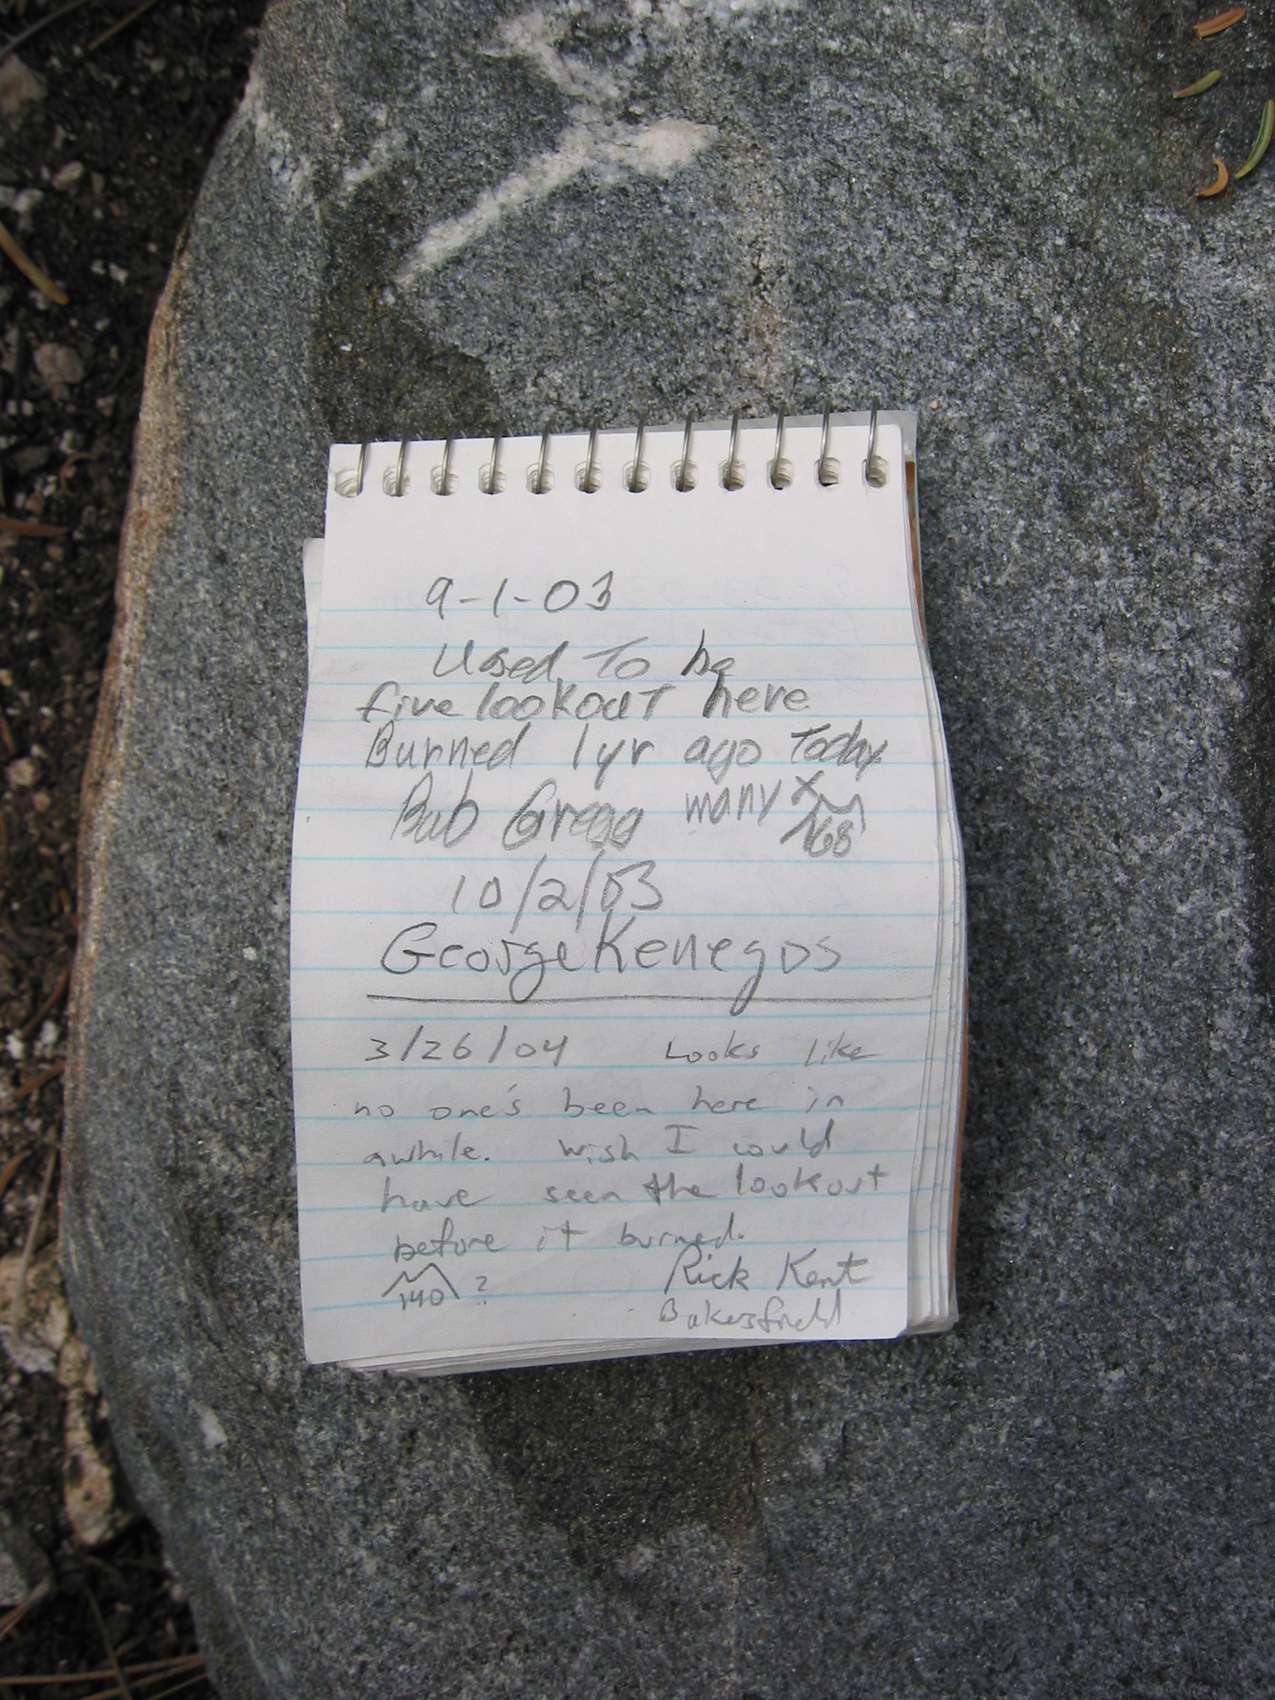 9-1-03
Used To be
fire lookout here
Burned 1yr ago Today
Bob Gregg many x
168
10/2/03
George Kenegos
3/26/04 Looks like
no one's been here in
awhile. Wish I could
have seen the lookout
before it burned.
140 ? Rick Kent
Bakersfield